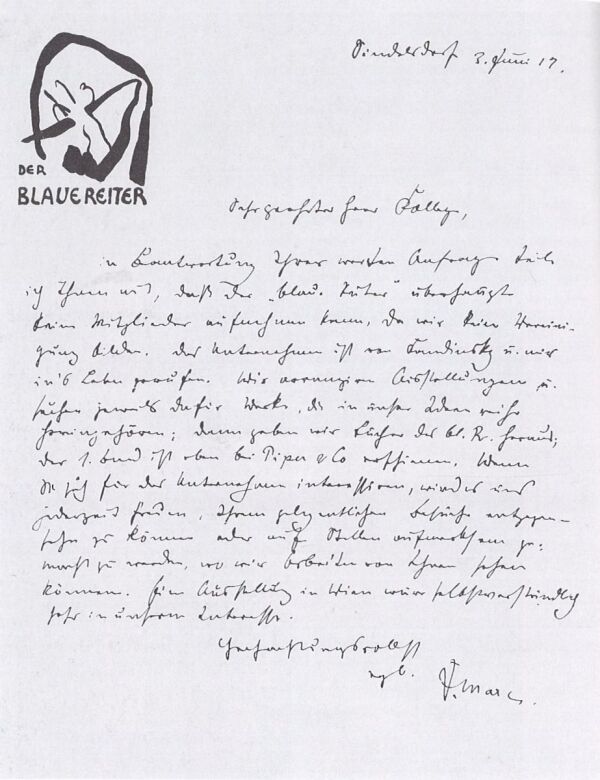 Sindelsdorf 3. Juni 12.
DER
BLAUE REITER
Sehr geehrter Herr Kollege,
in Beantwortung Ihrer werten Anfrage teile
ich Ihnen mit, daß der „blau. Reiter" überhaupt
keine Mitglieder aufnehmen kann, da wir keine Vereini-
gung bilden. Das Unternehmen ist von Kandinsky u. mir
in's Leben gerufen. Wir arrangieren Ausstellungen u.
suchen jeweils dafür Werke, die in unsere Ideenreihe
hereingehören; dann geben wir Bücher des bl. R. heraus;
der 1. Band ist eben bei Piper & Co erschienen. Wenn
Sie sich für das Unternehmen interessieren, wird es uns
jederzeit freuen, Ihrem gelegentlichen Besuche entgegen-
sehn zu können oder auf Stellen aufmerksam ge-
macht zu werden, wo wir Arbeiten von Ihnen sehen
können. Eine Ausstellung in Wien wäre selbstverständlich
sehr in unserem Interesse.
Hochachtungsvollst
F. Marc.